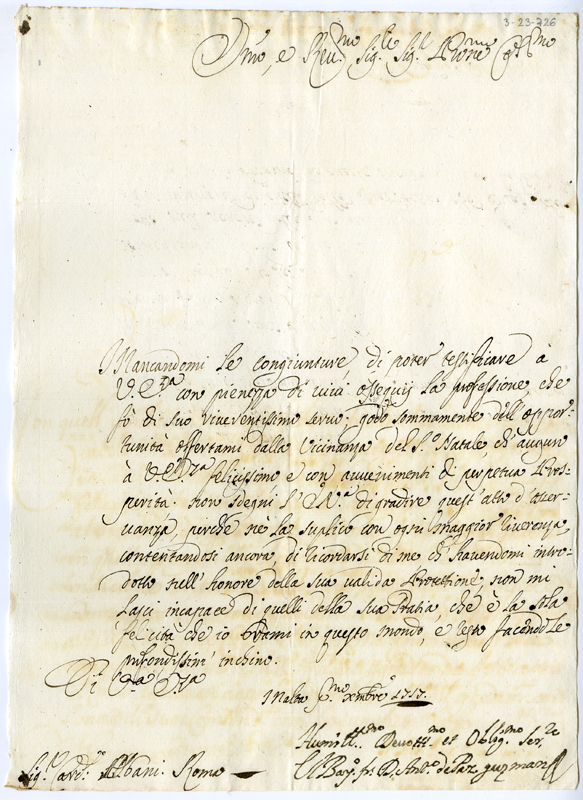 3-23-726
Em̃o, e Reu.mo Sig.re Sig.r Pron̄e Col.mo
Mancandomi le congiunture, di poter testificare à
V. E.za con pienezza di cuici ossequij la professione che
fò di suo riverentissimo seruo; godo sommamente dell'oppor-
tunità offertami dalla Vicinanza del S.o Natale, ch'auguro
à V. Em.za felicissimo e con auuenimenti di perpetua Pros-
perità. Non sdegni l'E. V.a di gradire quest'atto d'osser-
uanza, perche nè la suplico con ogni maggior riuerenza,
contentandosi ancora di ricordarsi di me ch'hauendomi intro-
dotto nell'honore della sua valida Protettione, non mi
lasci incapace di quelli della sua Gratia, che è la sola
felicità che io brami in questo mondo, e resto facendole
profondissimi inchini.
Di V.a E.za
Malta p.mo Xmbre 1717.
Humiliss.mo Deuott.mo et Oblig.mo Ser.re
Sig.r Card.le Albani. Roma
El Bay.o fr. D. Ant.o de Paz guzman